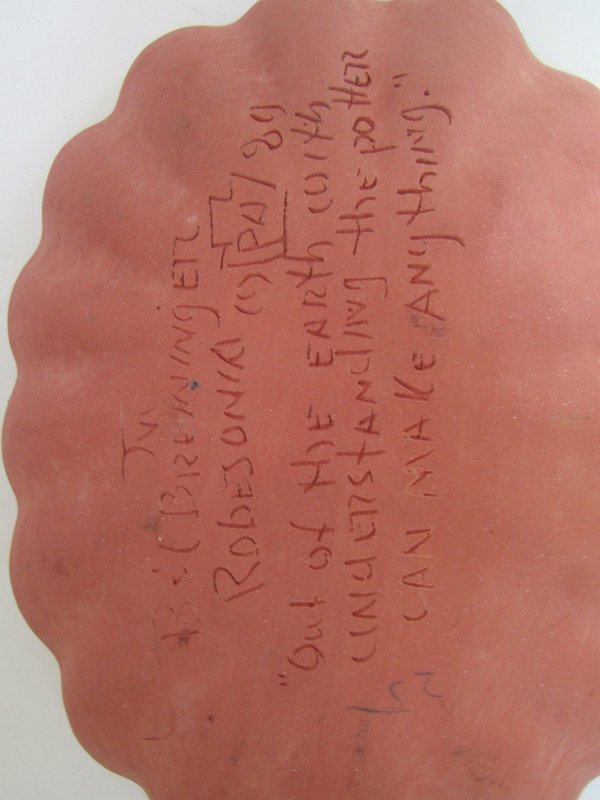 Bil BREININGER
RobESONIA PA / 89
"Out of thE EARth with
UNdERSTANdiNg thE pottER
CAN MAKE ANythiNg."